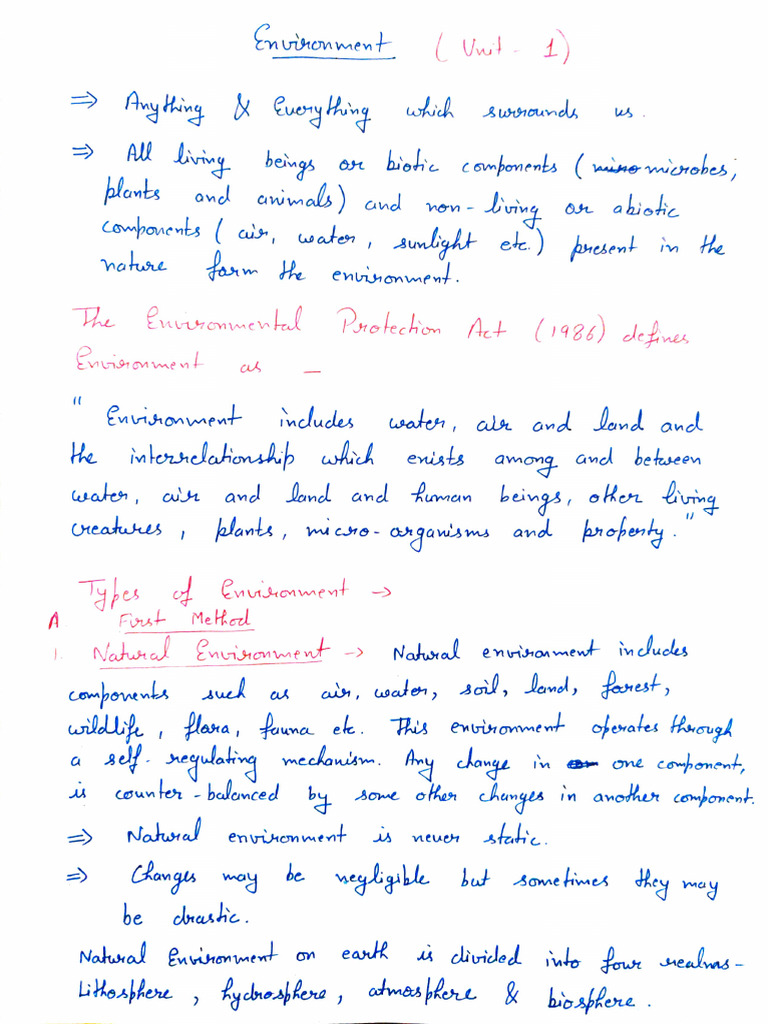 Environment ( Unit - 1)
⇒ Anything & Everything which surrounds us.
⇒ All living beings or biotic components ( microbes,
plants and animals) and non-living or abiotic
components ( air, water, sunlight etc.) present in the
nature form the environment.
The Environmental Protection Act (1986) defines
Environment as —
" Environment includes water, air and land and
the interrelationship which exists among and between
water, air and land and human beings, other living
creatures, plants, micro-organisms and property."
Types of Environment →
A First Method
1. Natural Environment → Natural environment includes
components such as air, water, soil, land, forest,
wildlife, flora, fauna etc. This environment operates through
a self-regulating mechanism. Any change in one component,
is counter-balanced by some other changes in another component.
⇒ Natural environment is never static.
⇒ Changes may be negligible but sometimes they may
be drastic.
Natural Environment on earth is divided into four realms-
Lithosphere, hydrosphere, atmosphere & biosphere.